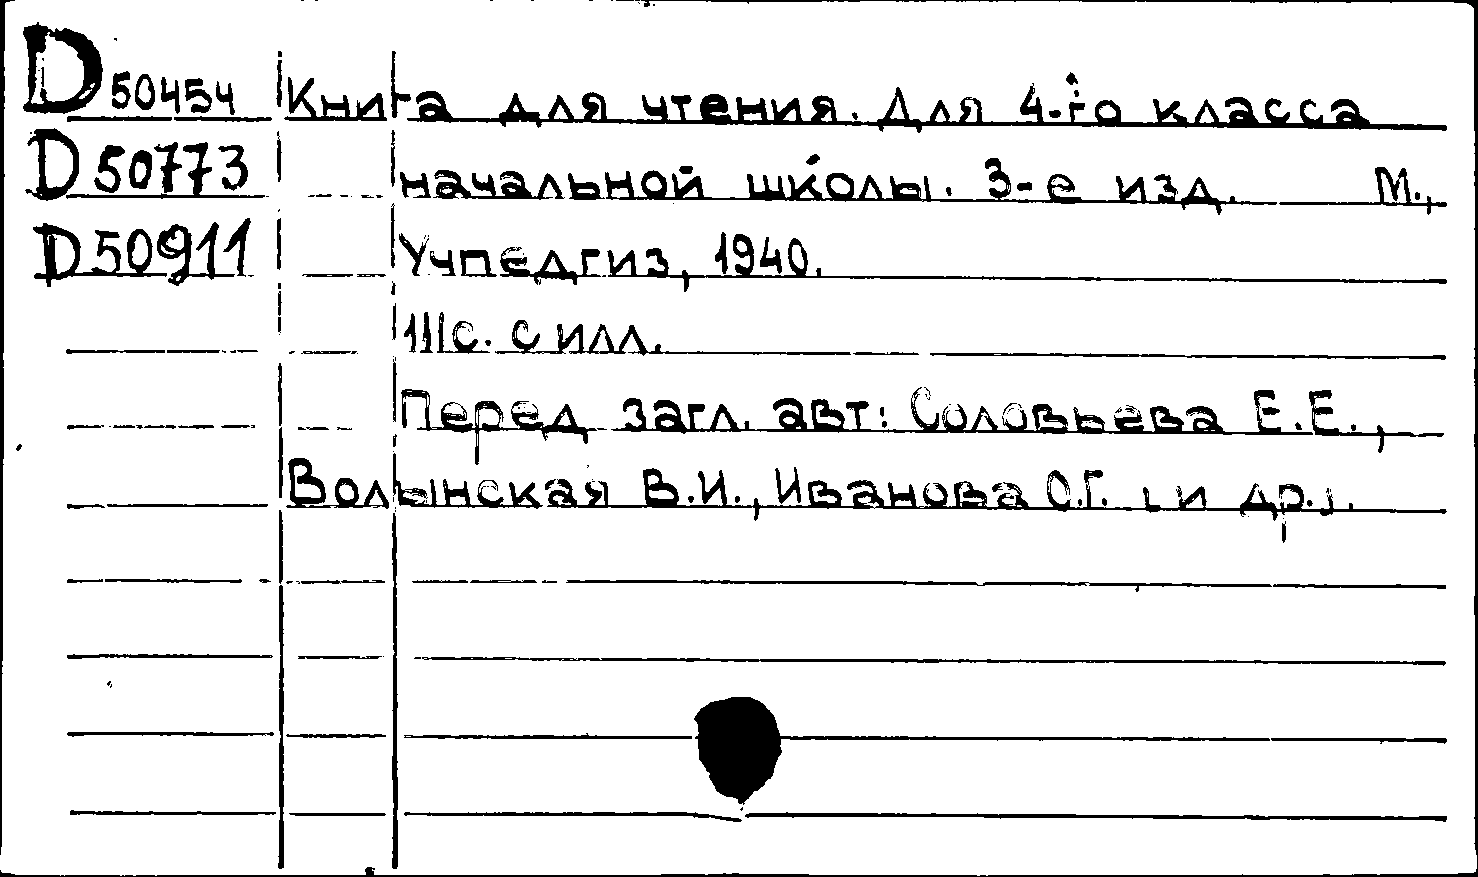 D 50454 Книга для чтения. Для 4-го класса
D 50773 начальной школы. 3-е изд. М.,
D 50911 Учпедгиз, 1940.
111с. с илл.
Перед загл. авт: Соловьева Е.Е.,
Волынская В.И., Иванова О.Г. [и др.].